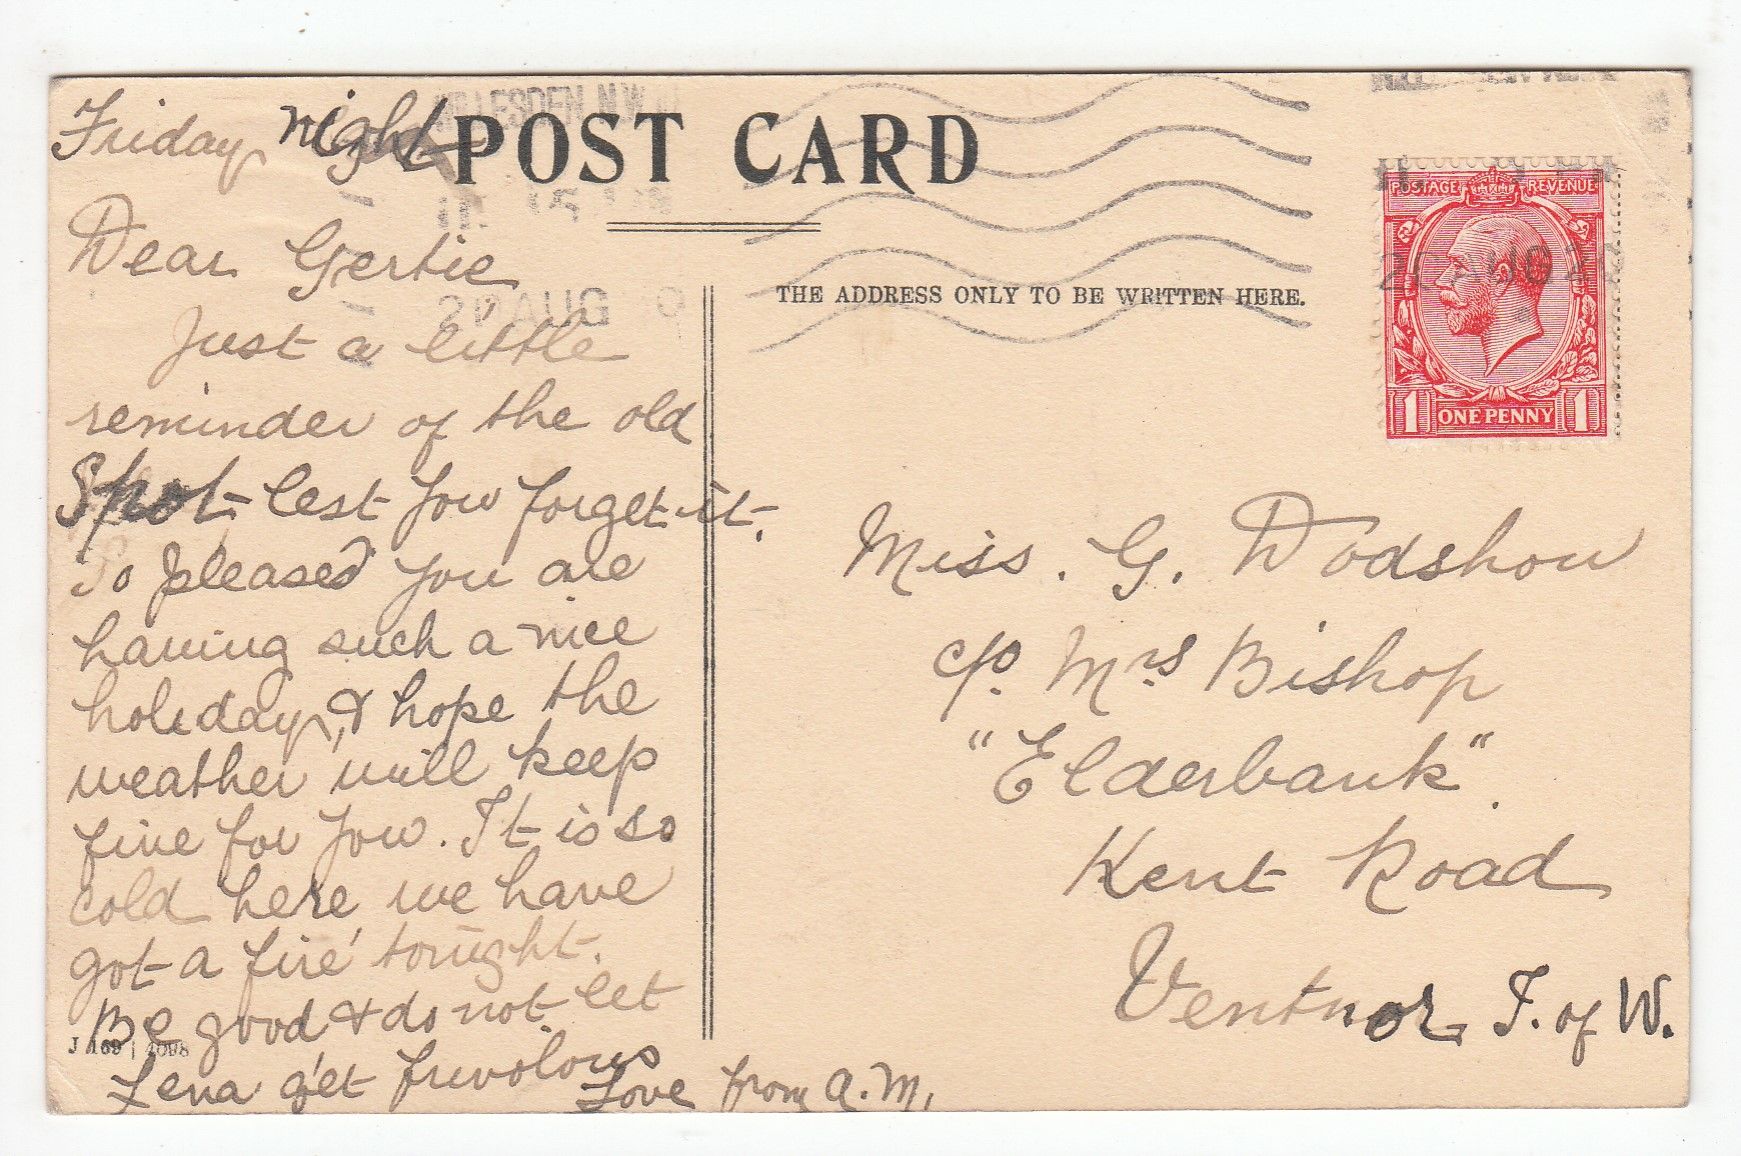 Friday night
POST CARD
Dear Gertie
Just a little
reminder of the old
Spot lest you forget it.
So pleased you are
having such a nice
holiday, & hope the
weather will keep
fine for you. It is so
cold here we have
got a fire tonight.
Be good & do not let
Lena get frivolous
Love from A.M.
THE ADDRESS ONLY TO BE WRITTEN HERE.
POSTAGE REVENUE
1 ONE PENNY 1
Miss. G. Dodshow
c/o. Mrs Bishop
"Elderbank".
Kent Road
Ventnor I. of W.
WILLESDEN N.W.
AUG
AUG